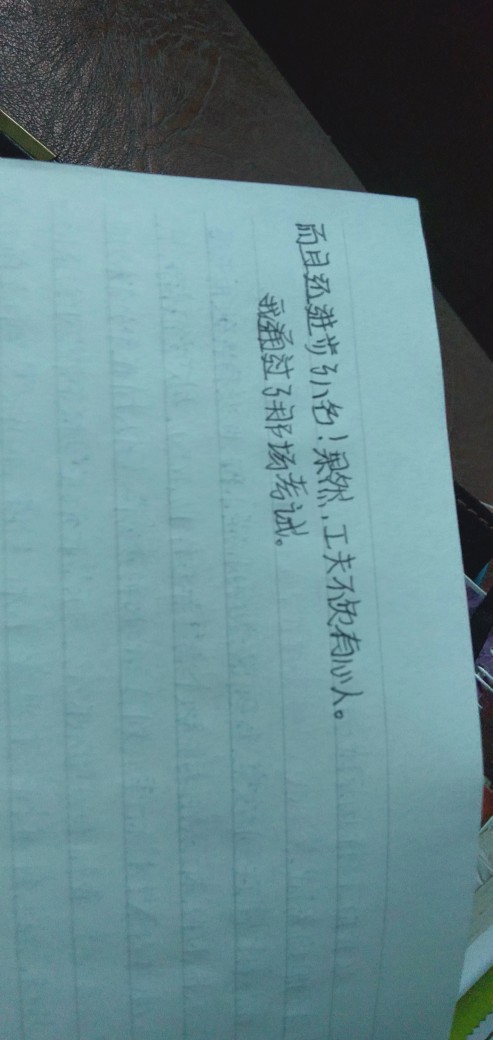 而且还进步了八名！果然，工夫不负有心人。
我通过了那场考试。